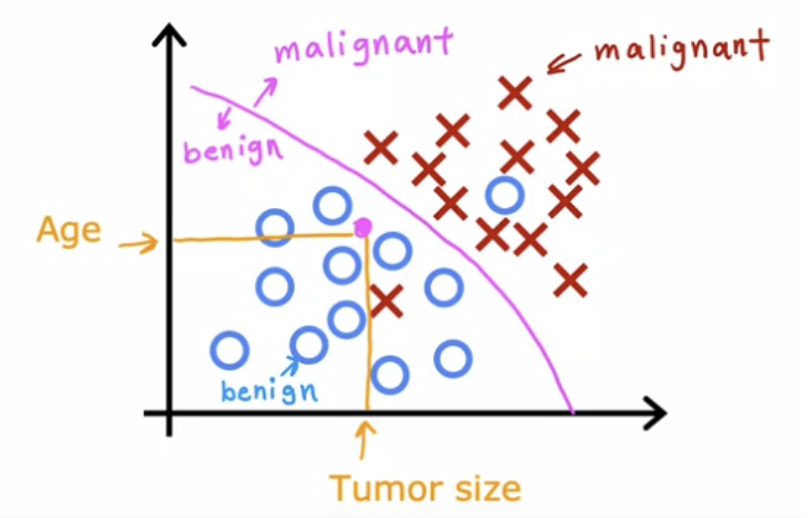 malignant
malignant
benign
Age
benign
Tumor size